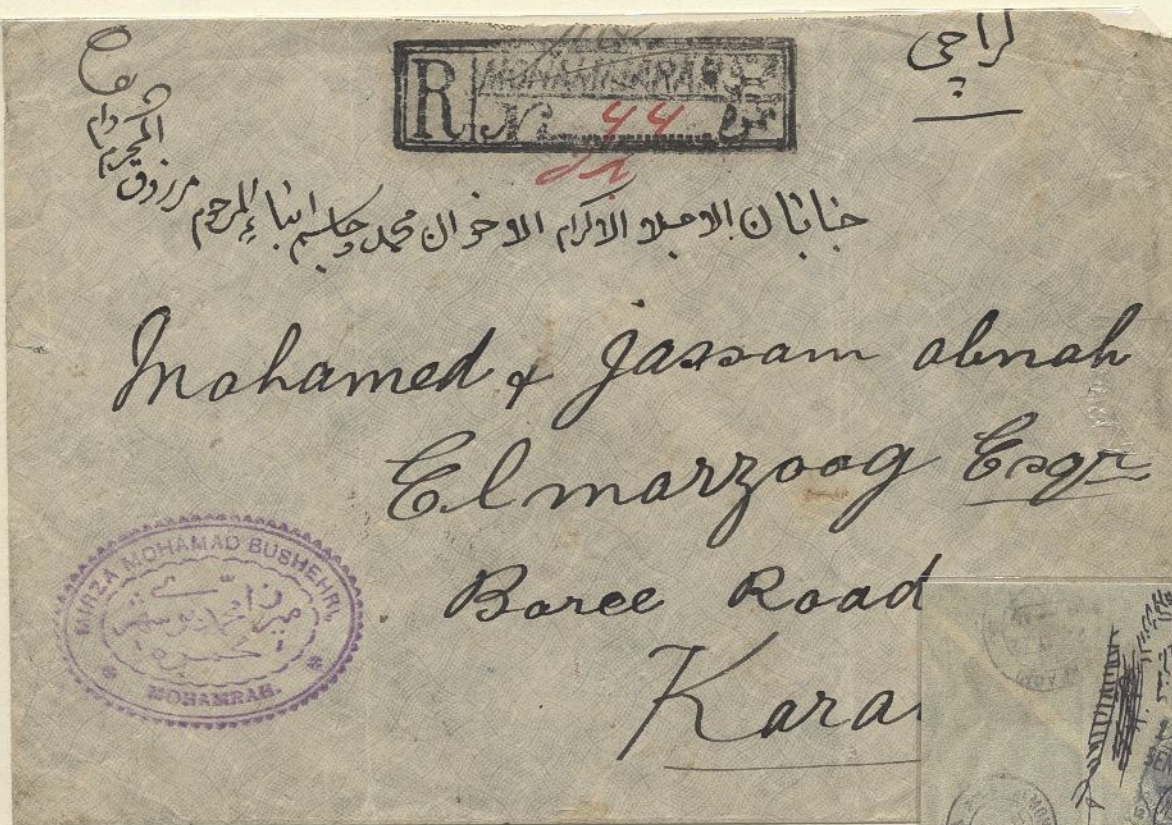 كراچي
R MOHAMMERAH
No 44 نمره
جنابان الاجلاء الاكرام الاخوان محمد وجاسم ابناء المرحوم مرزوق
المحترم دام
Mohamed & Jassam abnah
Elmarzoog Esqr
Boree Road
Kara
MIRZA MOHAMAD BUSHEHRI,
MOHAMRAH.